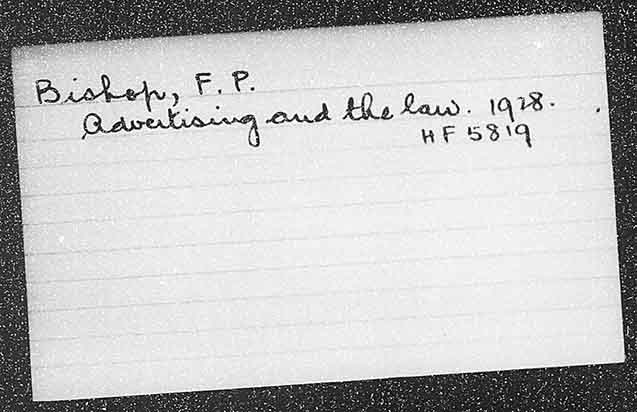 Bishop, F. P.
Advertising and the law. 1928.
HF 5819